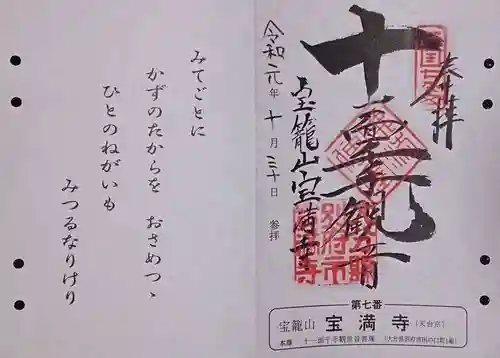 奉拝
十一面千手観音
宝籠山宝満寺
令和元年十月三十日 参拝
別府市
第七番
宝籠山 宝満寺 (天台宗)
本尊 十一面千手観世音菩薩 (大分県別府市田の口町1組)
みてごとに
かずのたからを おさめつゝ
ひとのねがいも
みつるなりけり